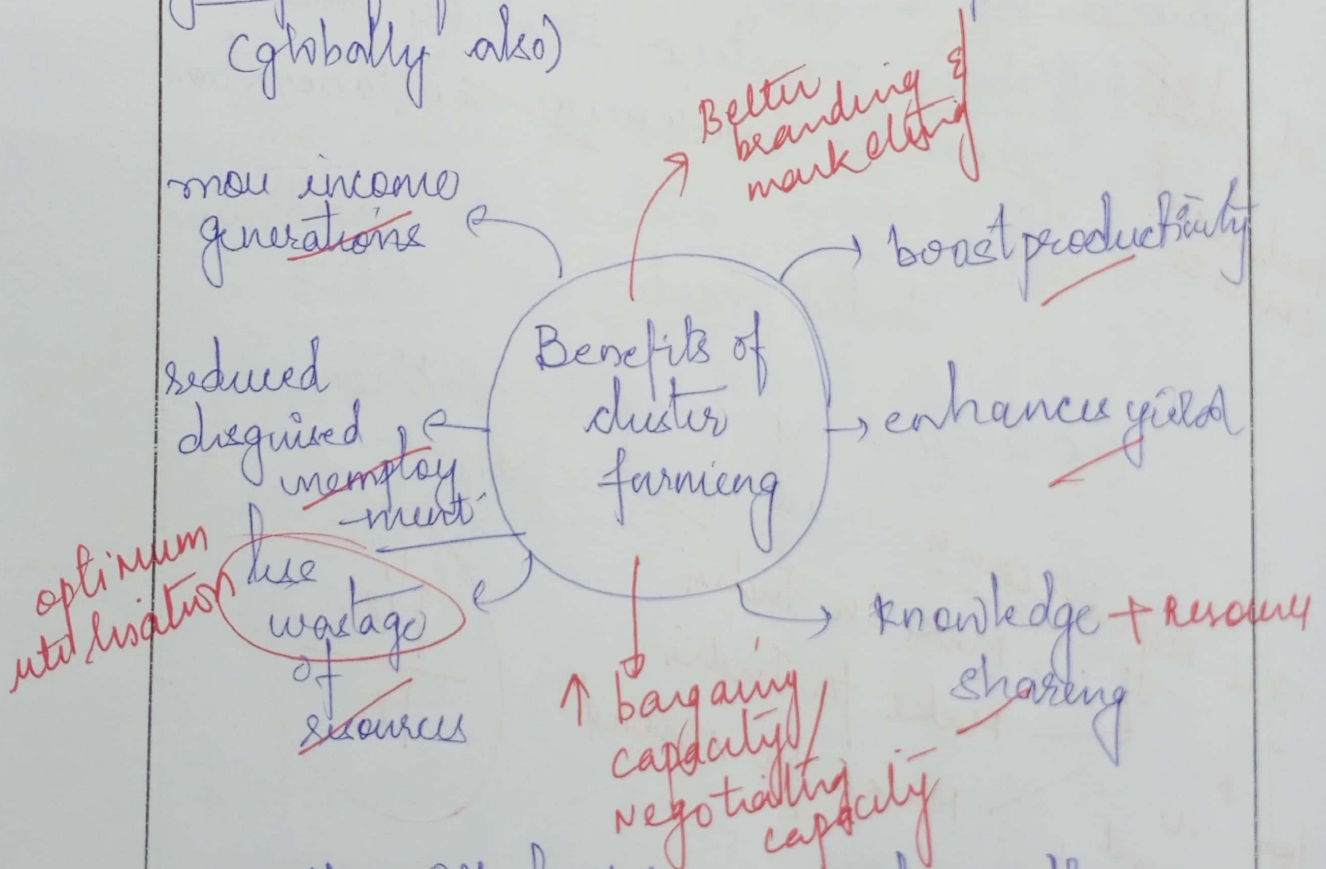 (globally also)
Better
branding &
marketing
more income
generations
boost productivity
Benefits of
cluster
farmieng
reduced
disguised
unemploy
-ment
enhances yield
optimum
utilisation
less
wastage
of
resources
knowledge + Resource
sharing
↑ bargaing
capacity /
Negotiating
capacity